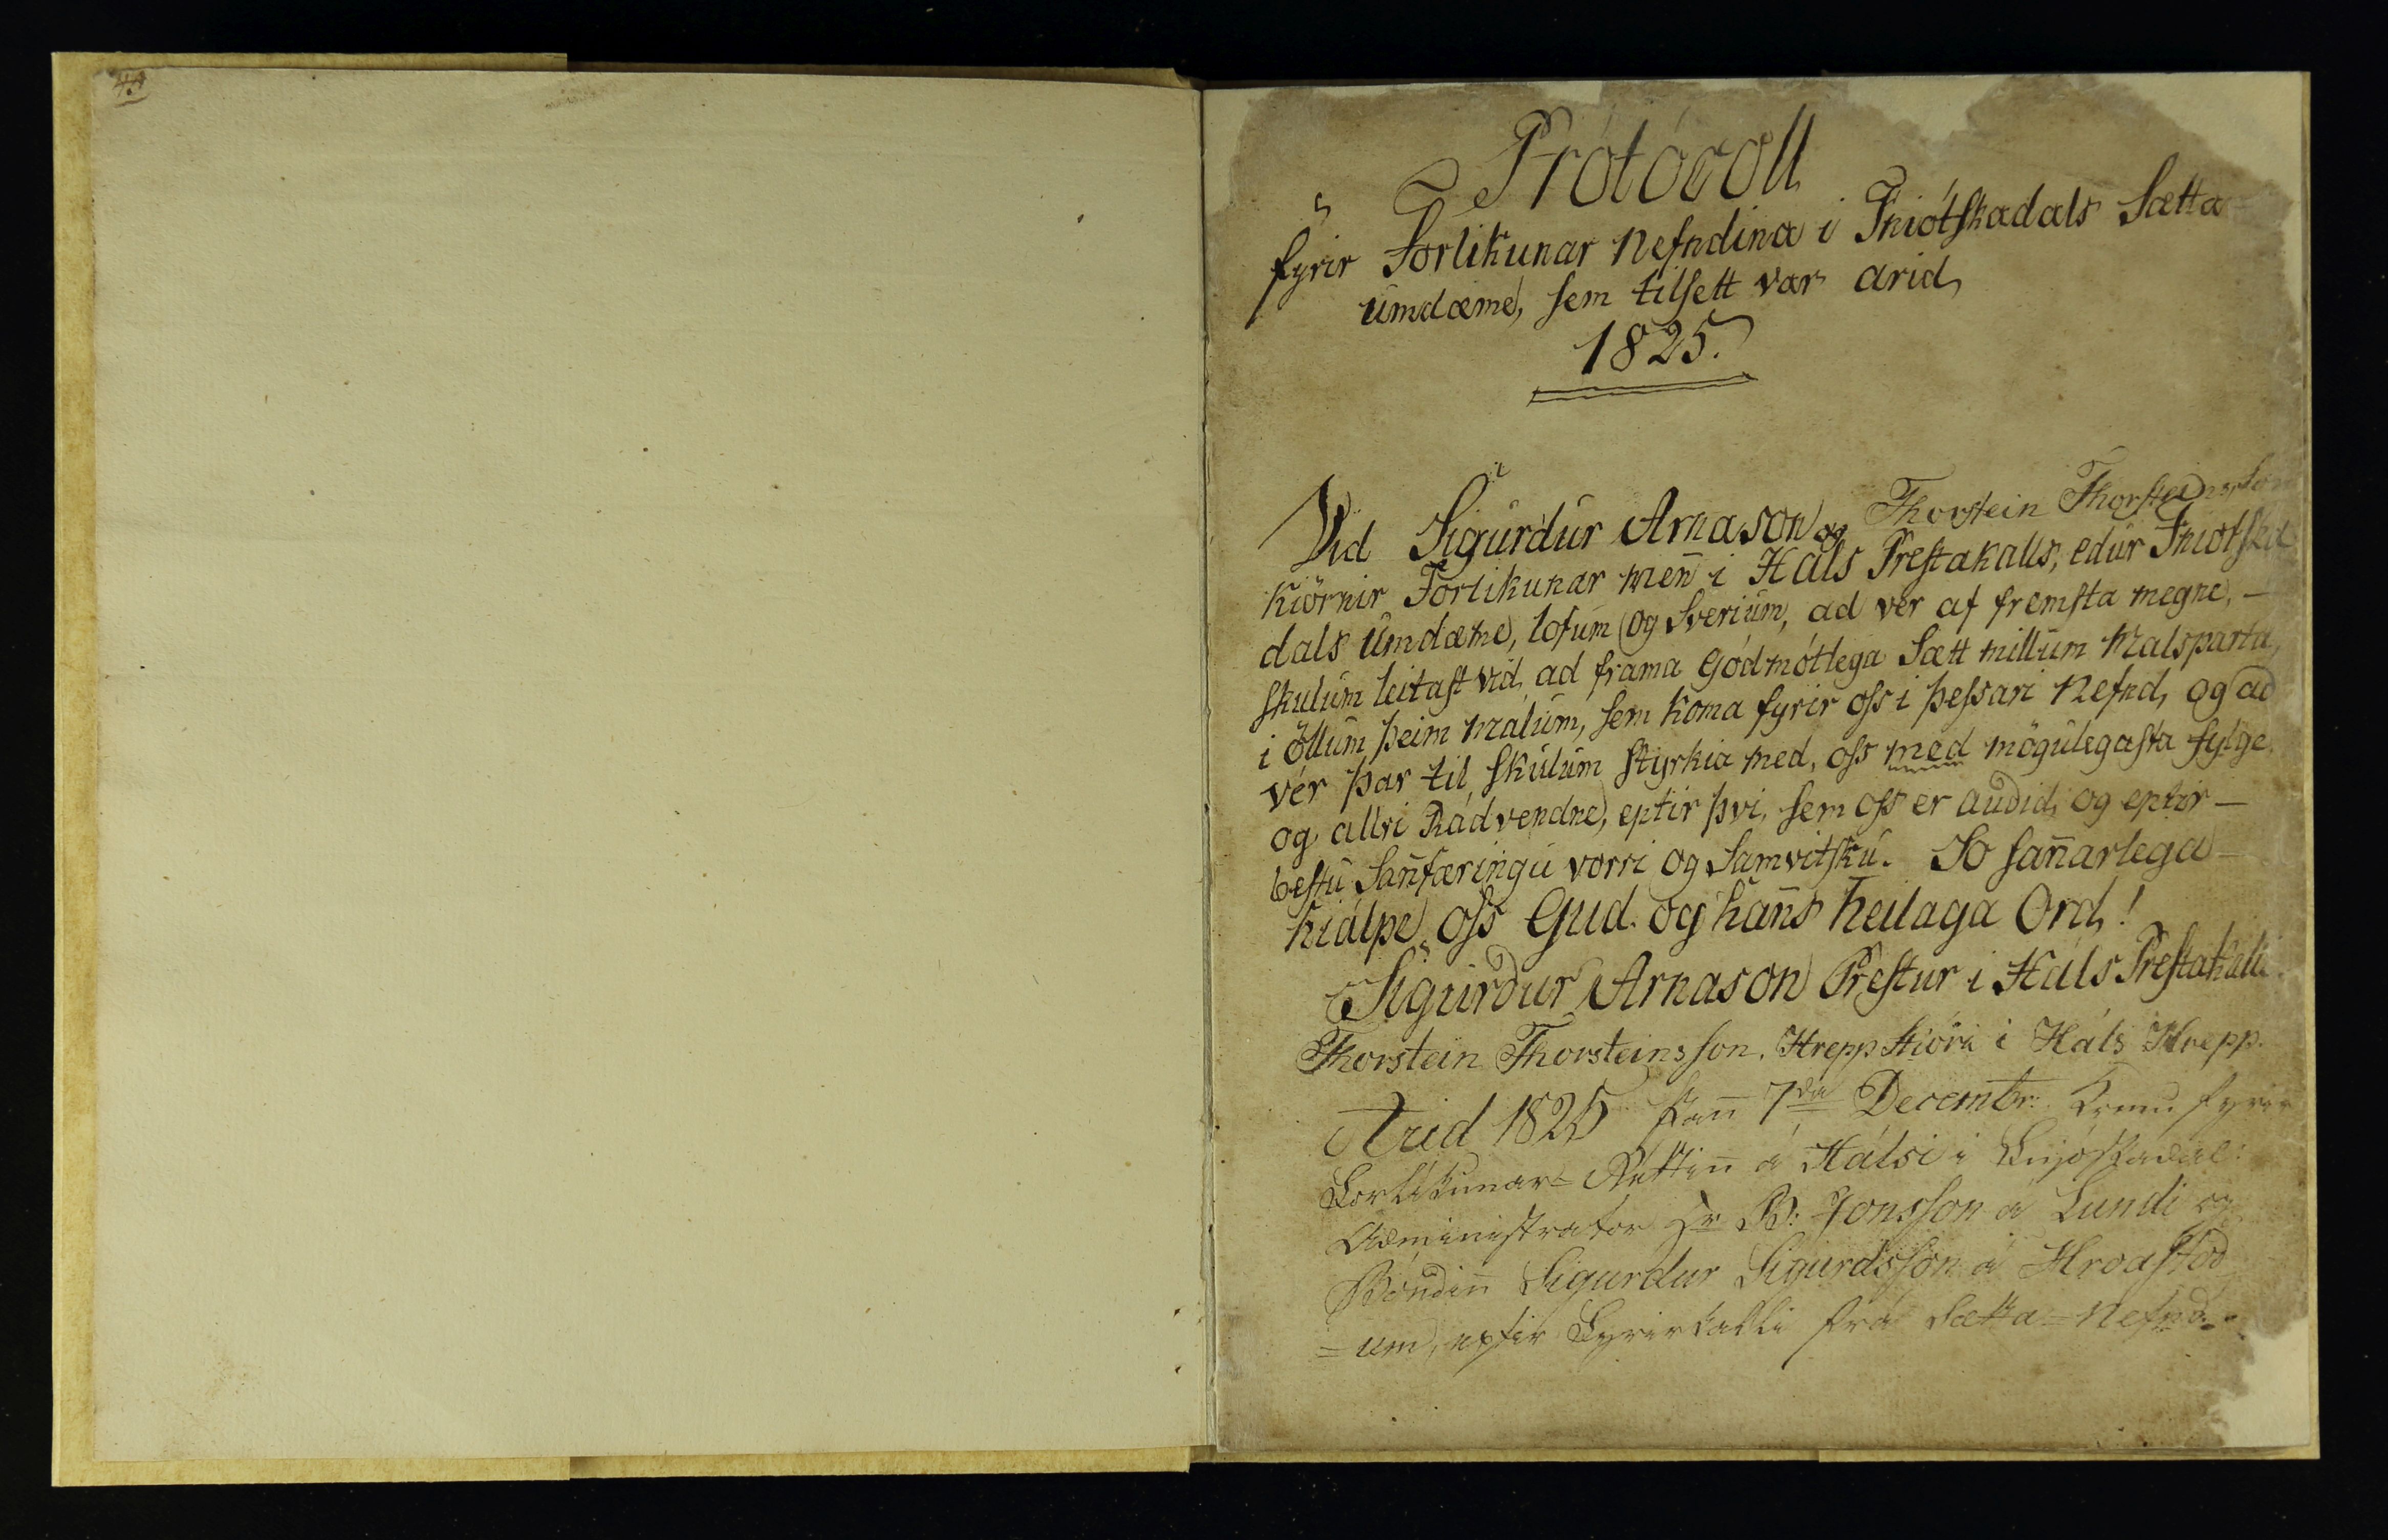 Prótócoll
fyrir Forlikunar Nefndina i Fniótskadals Sætta
umdæme, sem tilsett var arid
1825.
Vid Sigurdur Arnason og Thorstein Thorsteinsson
kiörnir Forlikunar men̄ i Háls Prestakalls, edur Fniotska
dals umdæme, lofum og sverium, ad vér af fremsta megne, —
skulum leitast vid, ad frama gódmótlega Sætt millum Malsparta,
i öllum þeim málum, sem koma fyrir oss i þessari Nefnd, og ad
vér þar til skulum styrkia med, oss med mögulegasta fylge
og allri Rádvendne, eptir þvi, sem oss er audid, og eptir —
bestu San̄færingu vorri og Samvitsku. So san̄arlega —
hiálpe oss Gud og han̄s heilaga Ord!
Sigurdur Arnason Prestur i Háls Prestakalli.
Thorstein Thorsteinsson. Hreppstióri i Háls Hrepp.
Arid 1825 þan̄ 7da Decembr: komu fyrir
Forlikunar= Réttin̄ á Hálsi i Fnjóskadal:
Administrator Hr B: Jonsson á Lundi og
Bóndin̄ Sigurdur Sigurdsson á Hroastöd
=um, eptir Fyrirkalli frá Sætta=Nefnd=